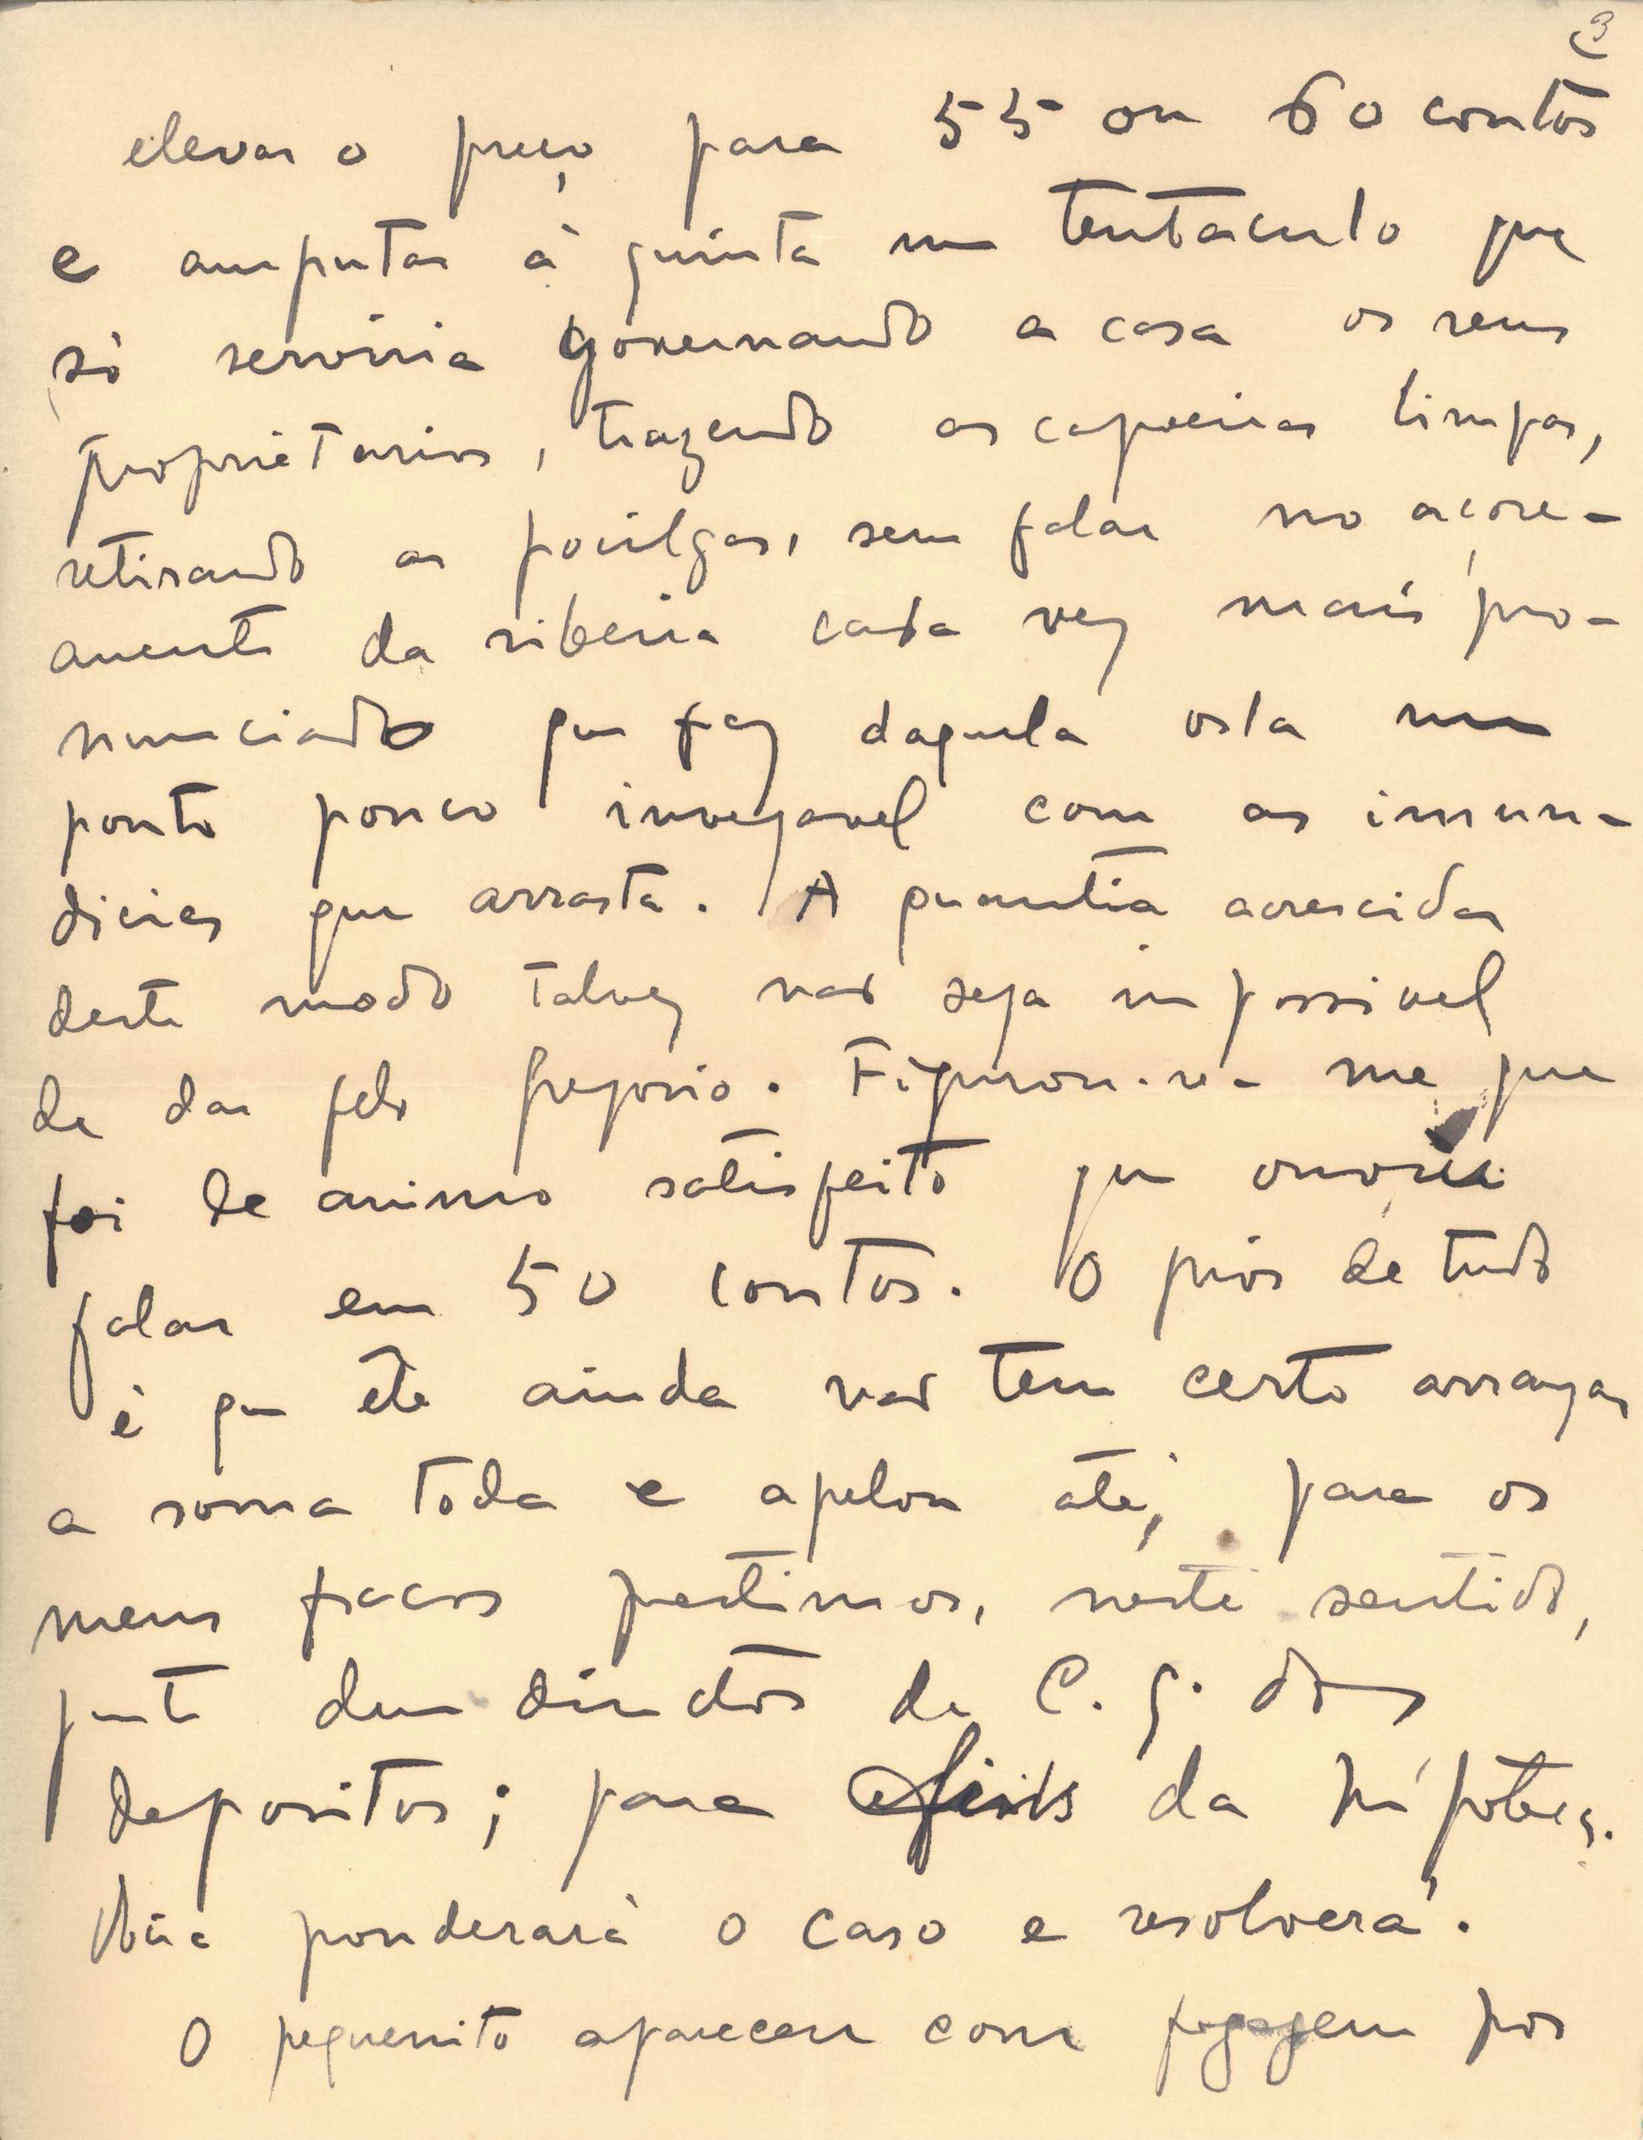 3
elevar o preço para 55 ou 60 contos
e amputar à quinta um tentaculo que
só serviria governando a casa os seus
proprietarios, trazendo as capoeiras limpas,
retirando as pocilgas, sem falar no açore-
amento da ribeira cada vez mais pro-
nunciado que faz daquela osta um
ponto pouco invejavel com as imun-
dicies que arrasta. A quantia acrescida
deste modo talvez não seja impossivel
de dar pelo Gregorio. Figurou-se-me que
foi de animo satisfeito que ouviu
falar em 50 contos. O pior de tudo
é que ele ainda não tem certo arranjar
a soma toda e apelou até, para os
meus fracos prestimos, neste sentido,
junto dum director da C. G. dos
depositos; para efeitos da hipoteca.
Mãe ponderará o caso e resolverá.
O pequenito apareceu com fogagem por